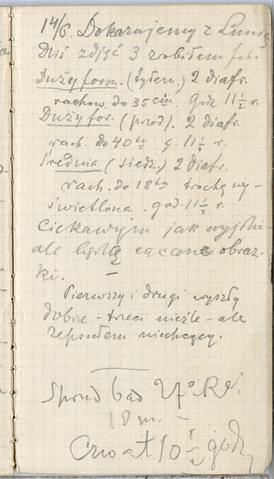 14/6. Dokazujemy z Lunią
Dziś zdjęć 3 zrobiłem fot.
Duży form. (tyłem.) 2 diafr.
rachow. do 35 cm. godz 11½ r.
Duży for. (przod). 2 diafr.
rach. do 40 g. 11½ r.
Średnia (siedz.) 2 diafr.
rach. do 18 trochę wy-
świetlona. god 11½ r.
Ciekawym jak wyjdzie
ale będą cacane obraz-
ki. —
Pierwszy i drugi wyszły
dobre - trzeci nieźle - ale
zepsułem niechcący.
10 m. —
at 10½ godz